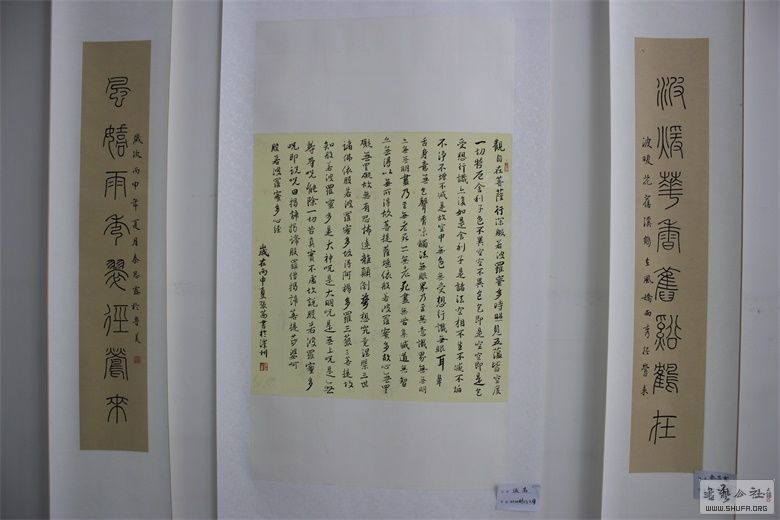 波煖華香舊谿鶴在
觀自在菩薩行深般若波羅蜜多時照見五蘊皆空度
一切苦厄舍利子色不異空空不異色色即是空空即是色
受想行識亦復如是舍利子是諸法空相不生不滅不垢
不淨不增不減是故空中無色無受想行識無眼耳鼻
舌身意無色聲香味觸法無眼界乃至無意識界無無明
亦無無明盡乃至無老死亦無老死盡無苦集滅道無智
亦無得以無所得故菩提薩埵依般若波羅蜜多故心無罣
礙無罣礙故無有恐怖遠離顛倒夢想究竟涅槃三世
諸佛依般若波羅蜜多故得阿耨多羅三藐三菩提故
知般若波羅蜜多是大神咒是大明咒是無上咒是無
等等咒能除一切苦真實不虛故說般若波羅蜜多
咒即說咒曰揭諦揭諦般羅僧揭諦菩提莎婆訶
般若波羅蜜多心經
歲在丙申夏張書於州
風嬉雨秀翠徑鶯來
歲次丙申年夏月秦
书艺公社
WWW.SHUFA.ORG